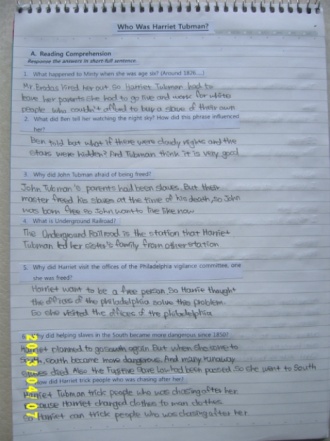 Who Was Harriet Tubman?
A. Reading Comprehension
Response the answers in short-full sentence.
1. What happened to Minty when she was age six? (Around 1826...)
Mr Brodas hired her out so Harriet Tubman had to
leave her parents. She had to go live and work for white
people who couldn't afford to buy a slave of their own
2. What did Ben tell her watching the night sky? How did this phrase influenced
her?
Ben told but what if there were cloudy nights and the
stars were hidden? And Tubman think it is very good
3. Why did John Tubman afraid of being freed?
John Tubman's parents had been slaves. But their
master freed his slaves at the time of his death, so John
was born free so John want to live like now
4. What is Underground Railroad?
The Underground Railroad is the station that Harriet
Tubman led her sister's family from other station
5. Why did Harriet visit the offices of the Philadelphia vigilance committee, one
she was freed?
Harriet want to be a free person. So Harriet thought
the offices of the philadelphia solve the problem.
So she visited the offices of the philadelphia
Why did helping slaves in the South became more dangerous since 1850?
Harriet planned to go south again. But when she come to
south, south became more dangerous. And many runaway
slaves died. Also the Fugitive Slave Law had been passed. So she went to South
How did Harriet trick people who was chasing after her?
Harriet Tubman trick people who was chasing after her
because Harriet changed clothes to man clothes
So Harriet can trick people who was chasing after her